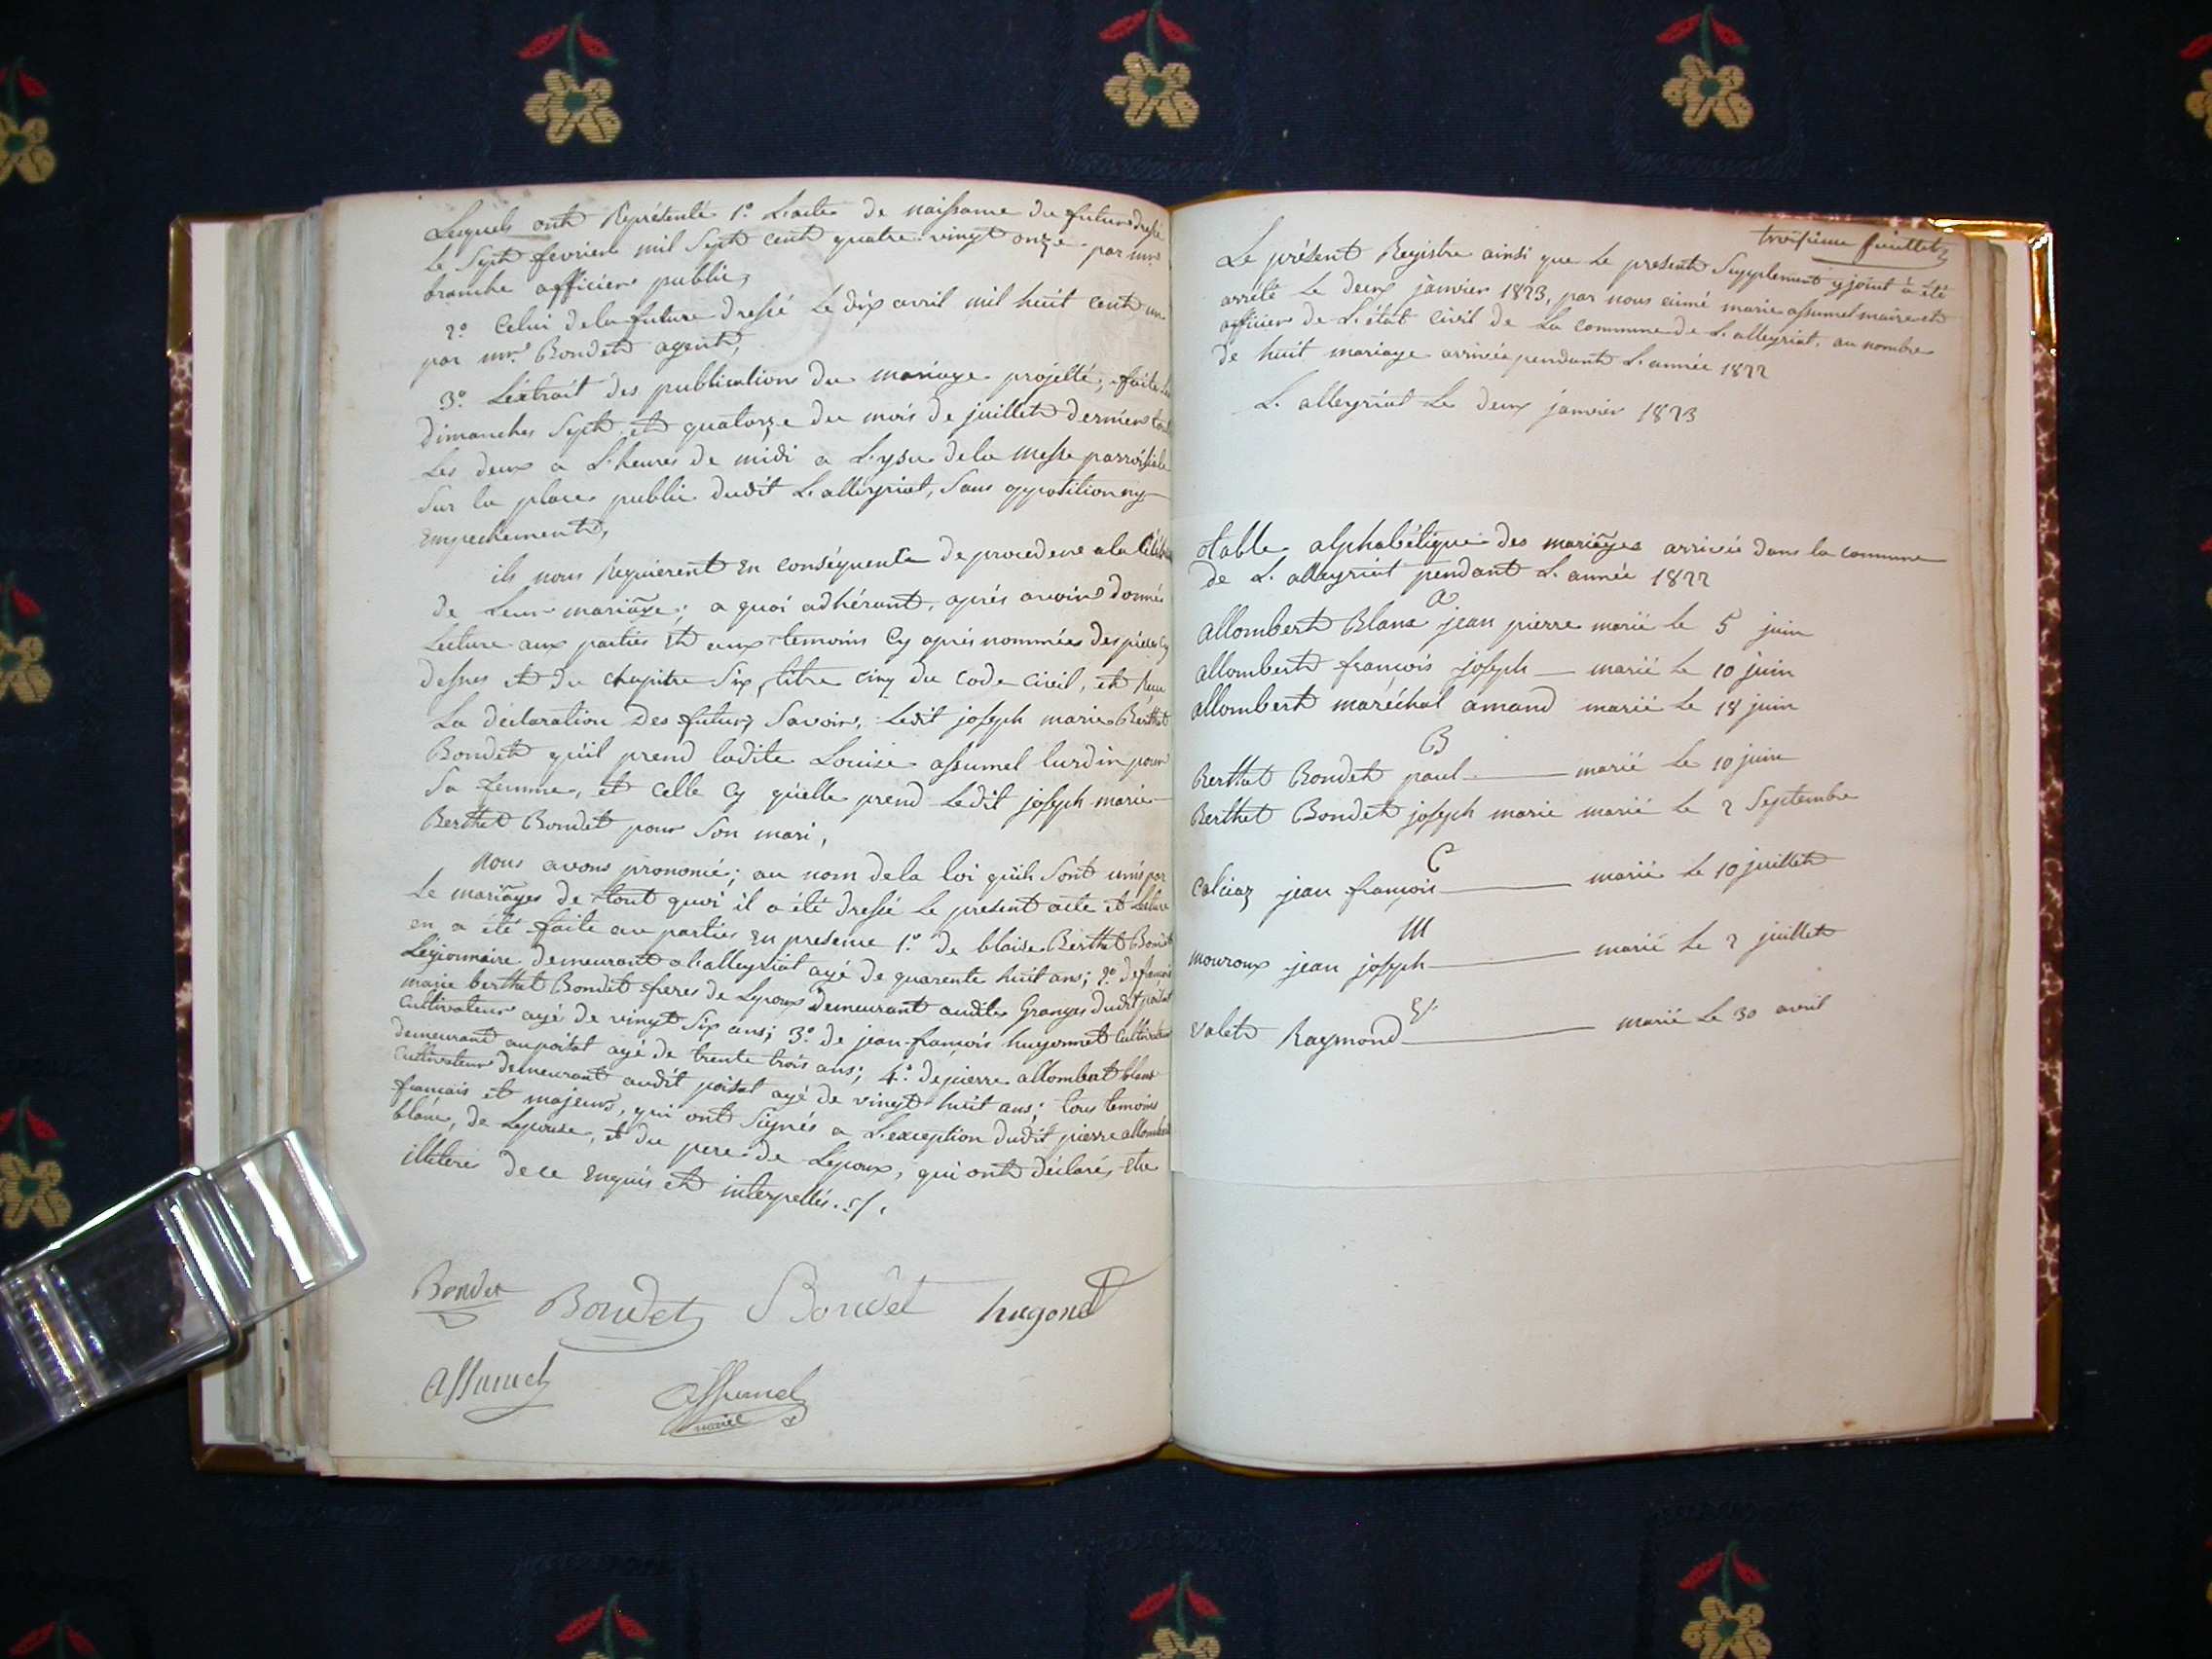 Lesquels ont Représenté 1.° L'acte de naissance du futur dressé
le Sept fevrier mil Sept cent quatre vingt onze par mr.
branche officier public,
2.° Celui de la future dressé Le dix avril mil huit cent un
par mr. Bondet agent,
3.° L'éxtrait des publications du mariage projetté, faites les
Dimanches Sept et quatorze du mois de juillet dernier tous
Les deux a L'heures de midi a L'ysu de la messe parroisiale
Sur la place public dudit L'alleyriat, Sans opposition ny
Empechements,
ils nous Réquierent En conséquence De proceder a la Céléb
de Leur mariage; a quoi adhérant, aprés avoir donnée
Lecture aux parties et aux temoins Cy aprés nommées des pièces Cy
dessus et du chapitre Six, titre cinq du Code Civil, et Reçu
La déclaration Des futurs Savoir, Ledit joseph marie Berthet
Bondet qu'il prend ladite Louise assumel lurdin pour
Sa femme, et Celle Cy qu'elle prend Ledit joseph marie
Berthet Bondet pour Son mari,
Nous avons prononcé; au nom de la loi qu'ils Sont unis par
Le mariages de tout quoi il a été dressé Le present acte et Lecture
en a été faite au parties En presence 1.° de blaise Berthet Bondet
Légionnaire demeurant a l'alleyriat agé de quarente huit ans; 2.° de françois
marie berthet Bondet freres de Lepoux demeurant audites Granges dudit poizat
Cultivateur agé de vingt Six ans; 3.° de jean françois hugonnet Cultivateur
demeurant au poizat agé de trente trois ans; 4.° de pierre allombert blanc
Cultivateur demeurant audit poizat agé de vingt huit ans; tous temoins
français et majeurs, qui ont Signés a L'exception dudit pierre allombert
blanc, de Lepouse, et du pere de Lepoux, qui ont déclarés Etre
illiteré de ce Enquis et interpellés ./.
Bondet Bondet Bondet hugonet
Assumel Assumel
maire
troisieme feuillet
Le présent Registre ainsi que le present Supplement y joint à été
arrêté Le deux janvier 1823, par nous aimé marie assumel maire et
officier de L'état Civil de La commune de L'alleyriat, au nombre
de huit mariage arrivée pendant L'année 1822
L'alleyriat Le deux janvier 1823
table alphabétique des mariages arrivée dans la commune
de L'alleyriat pendant L'année 1822
a
allombert Blanc jean pierre marié le 5 juin
allombert françois joseph — marié le 10 juin
allombert maréchal amand marié Le 18 juin
B
Berthet Bondet paul — marié Le 10 juin
Berthet Bondet joseph marie marié Le 2 Septembre
C
Calciaz jean françois — marié Le 10 juillet
M
mouroux jean joseph — marié Le 2 juillet
V
valet Raymond — marié Le 30 avril